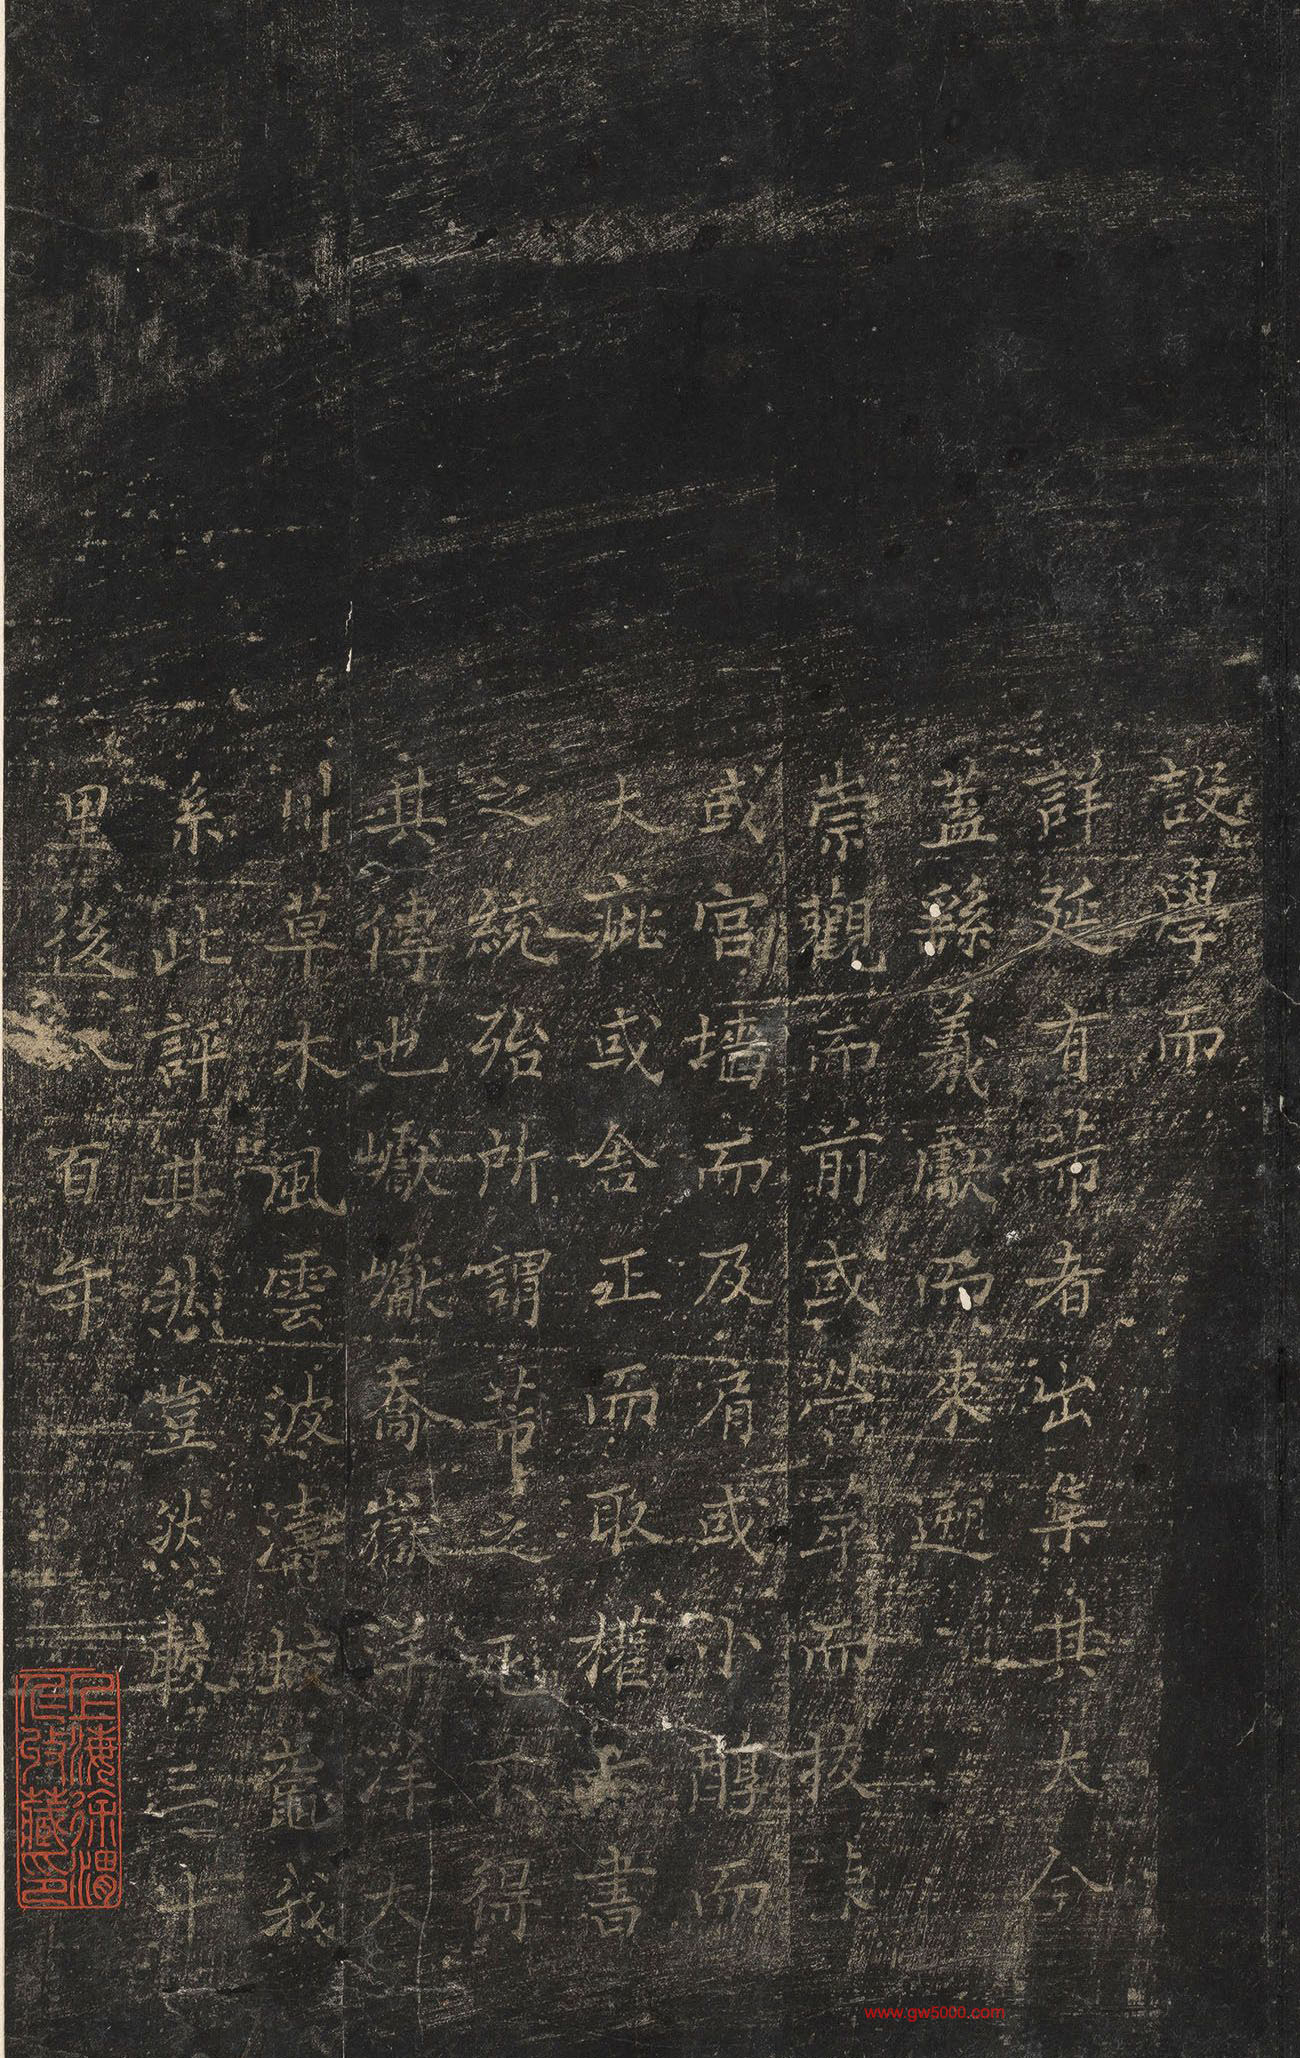 設學而
詳延有芾者出集其大今
蓋繇羲獻而來遡
崇觀而前或勞卒而拔
或宫墻而及肩或小醇而
大疵或舍正而取權書
之統殆所謂芾之不得
其傳也巘巘喬嶽洋洋大
川草木風雲波濤蛟鼉我
系此評其然豈然載三十
里後八百年
上海徐渭仁收藏印
www.gw5000.com